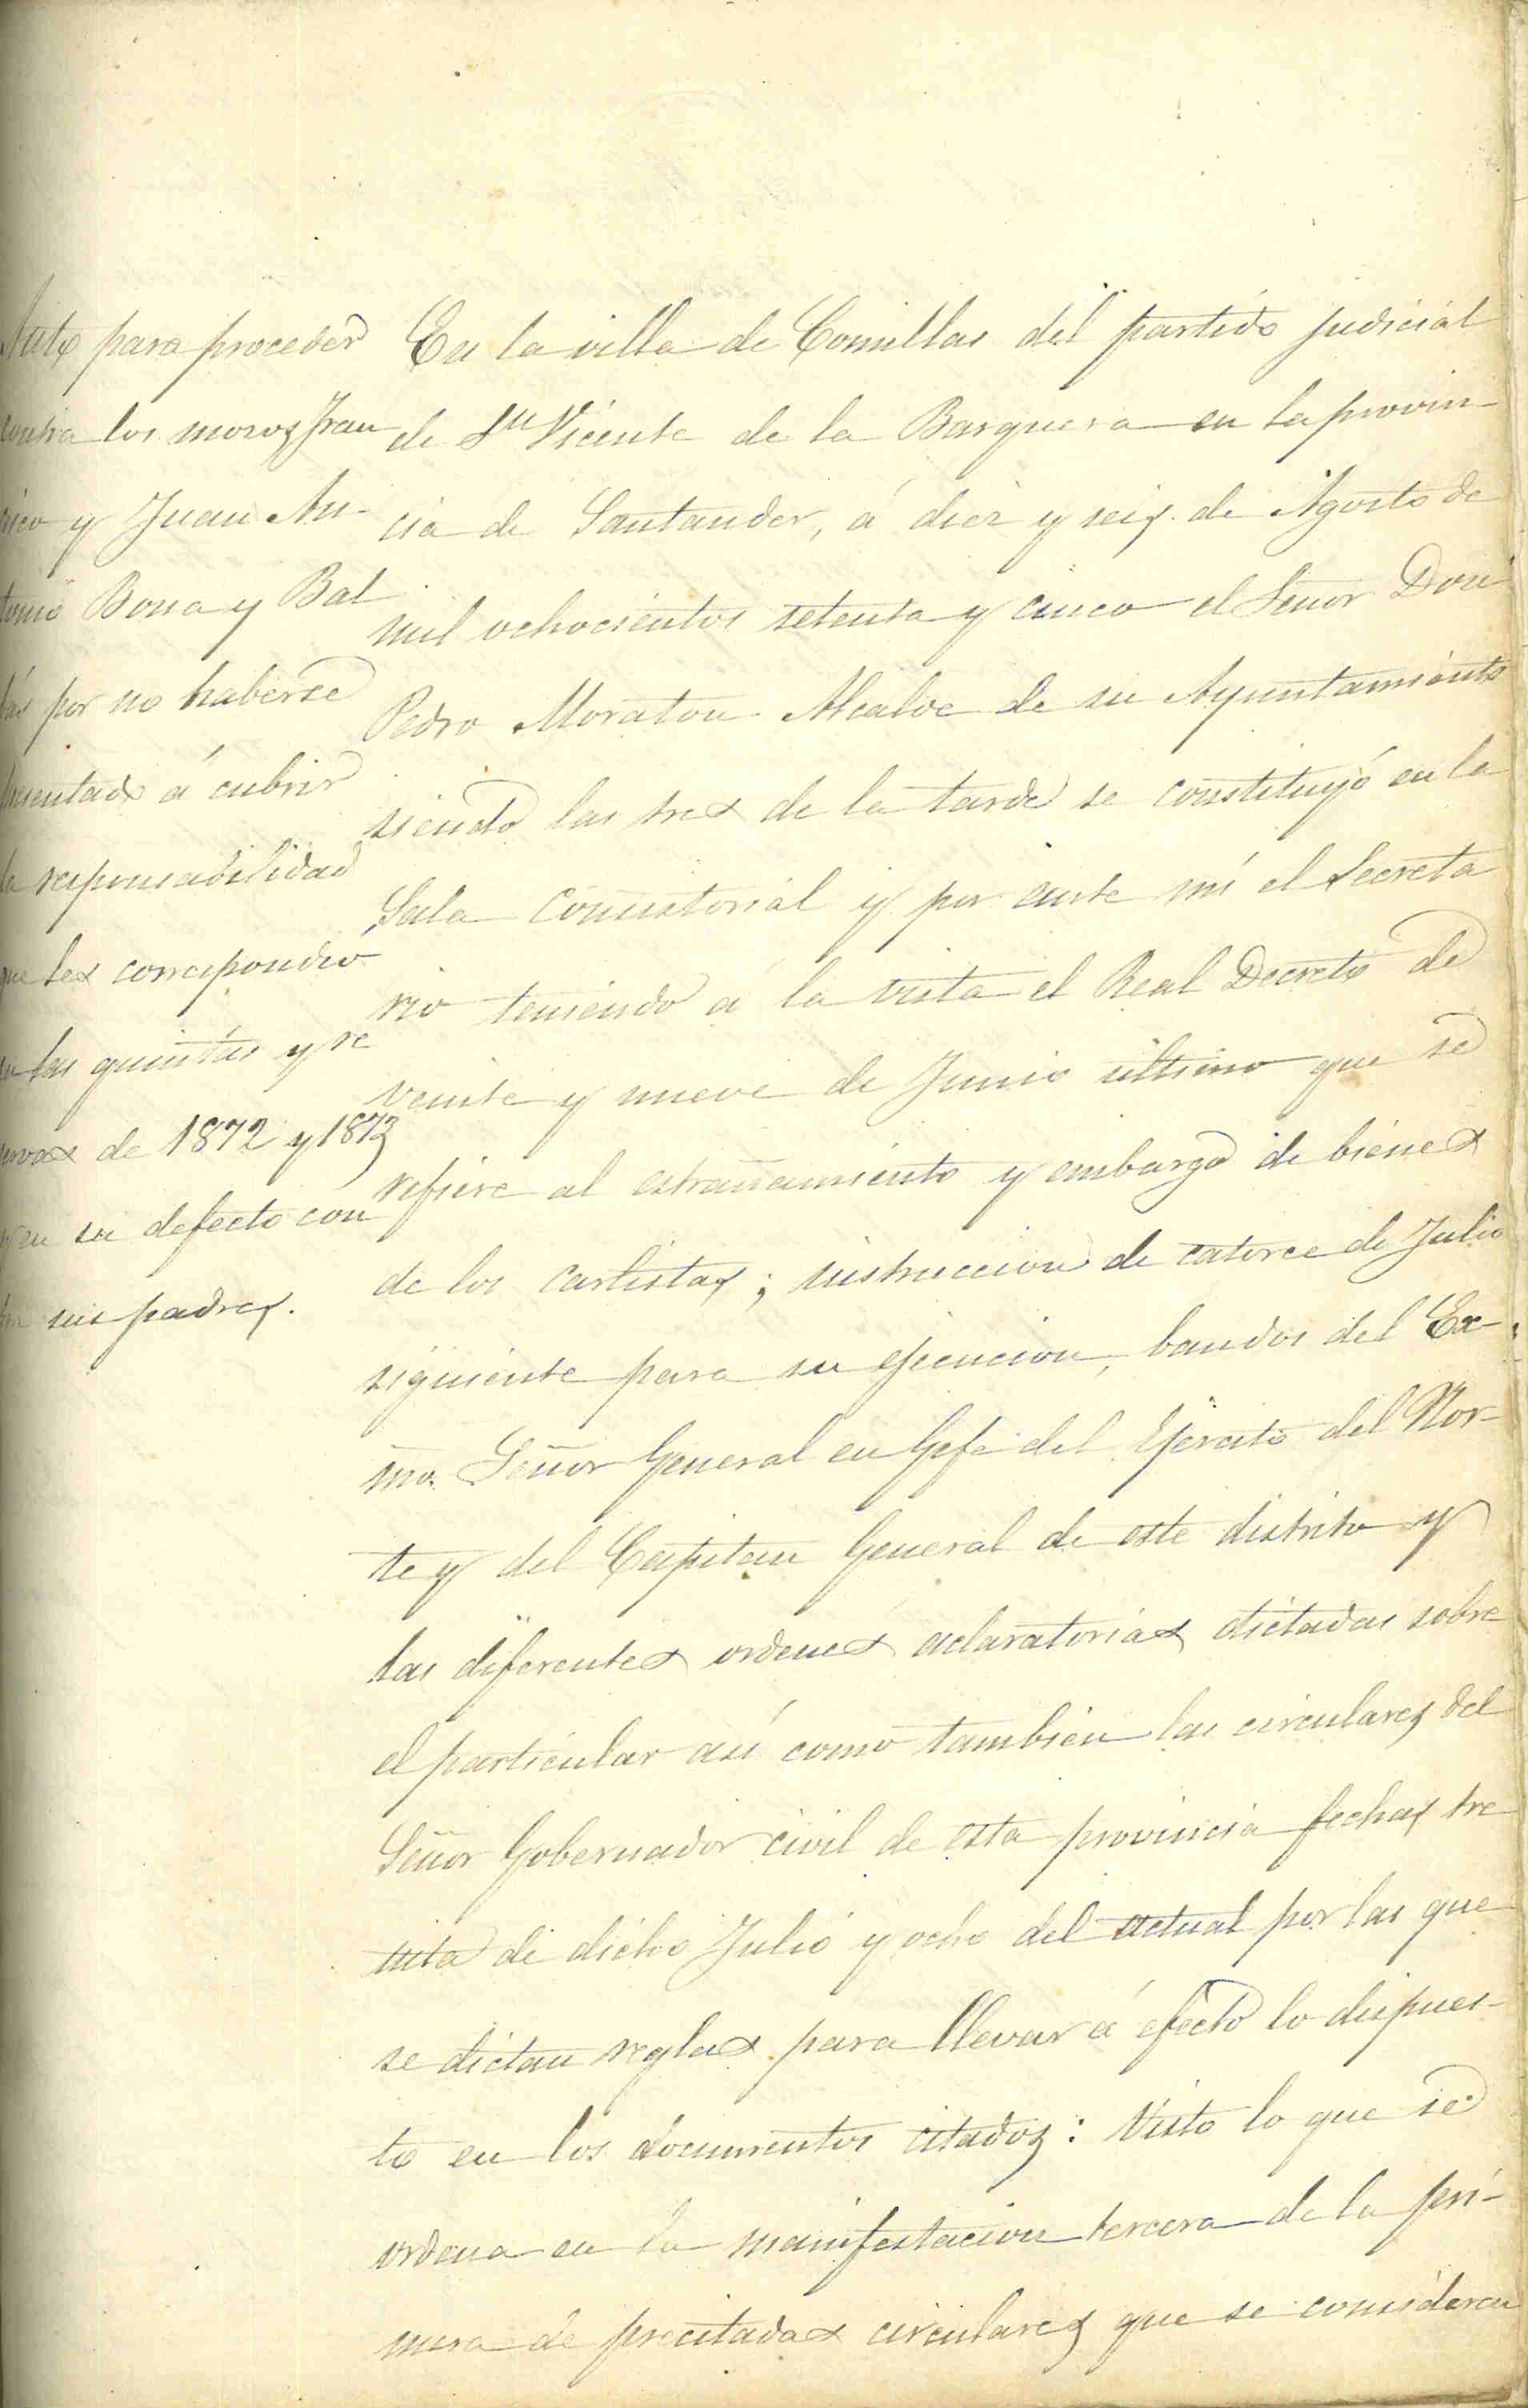 Auto para proceder
contra los mozos Fran
cisco y Juan An-
tonio Bona y Bal
bás por no haberse
presentado á cubrir
la responsabilidad
que les correspondió
en las quintas y re
servas de 1872 y 1873
y en su defecto con
tra sus padres.
En la villa de Comillas del partido judicial
de Sn Vicente de la Barquera en la provin-
cia de Santander, á diez y seis de Agosto de
mil ochocientos setenta y cinco el Señor Don
Pedro Moraton Alcalde de su Ayuntamiento
siendo las tres de la tarde se constituyó en la
Sala Consistorial y por ante mí el Secreta
rio teniendo á la vista el Real Decreto de
veinte y nueve de Junio último que se
refiere al estrañamiento y embargo de bienes
de los carlistas; instruccion de catorce de Julio
siguiente para su ejecucion, bandos del Ex-
mo. Señor General en Gefe del Ejercito del Nor-
te y del Capitan General de este distrito y
las diferentes ordenes aclaratorias dictadas sobre
el particular así como tambien las circulares del
Señor Gobernador civil de esta provincia fechas tre
inta de dicho Julio y ocho del actual por las que
se dictan reglas para llevar á efecto lo dispues-
to en los documentos citados: Visto lo que se
ordena en la manifestacion tercera de la pri-
mera de precitadas circulares que se consideren